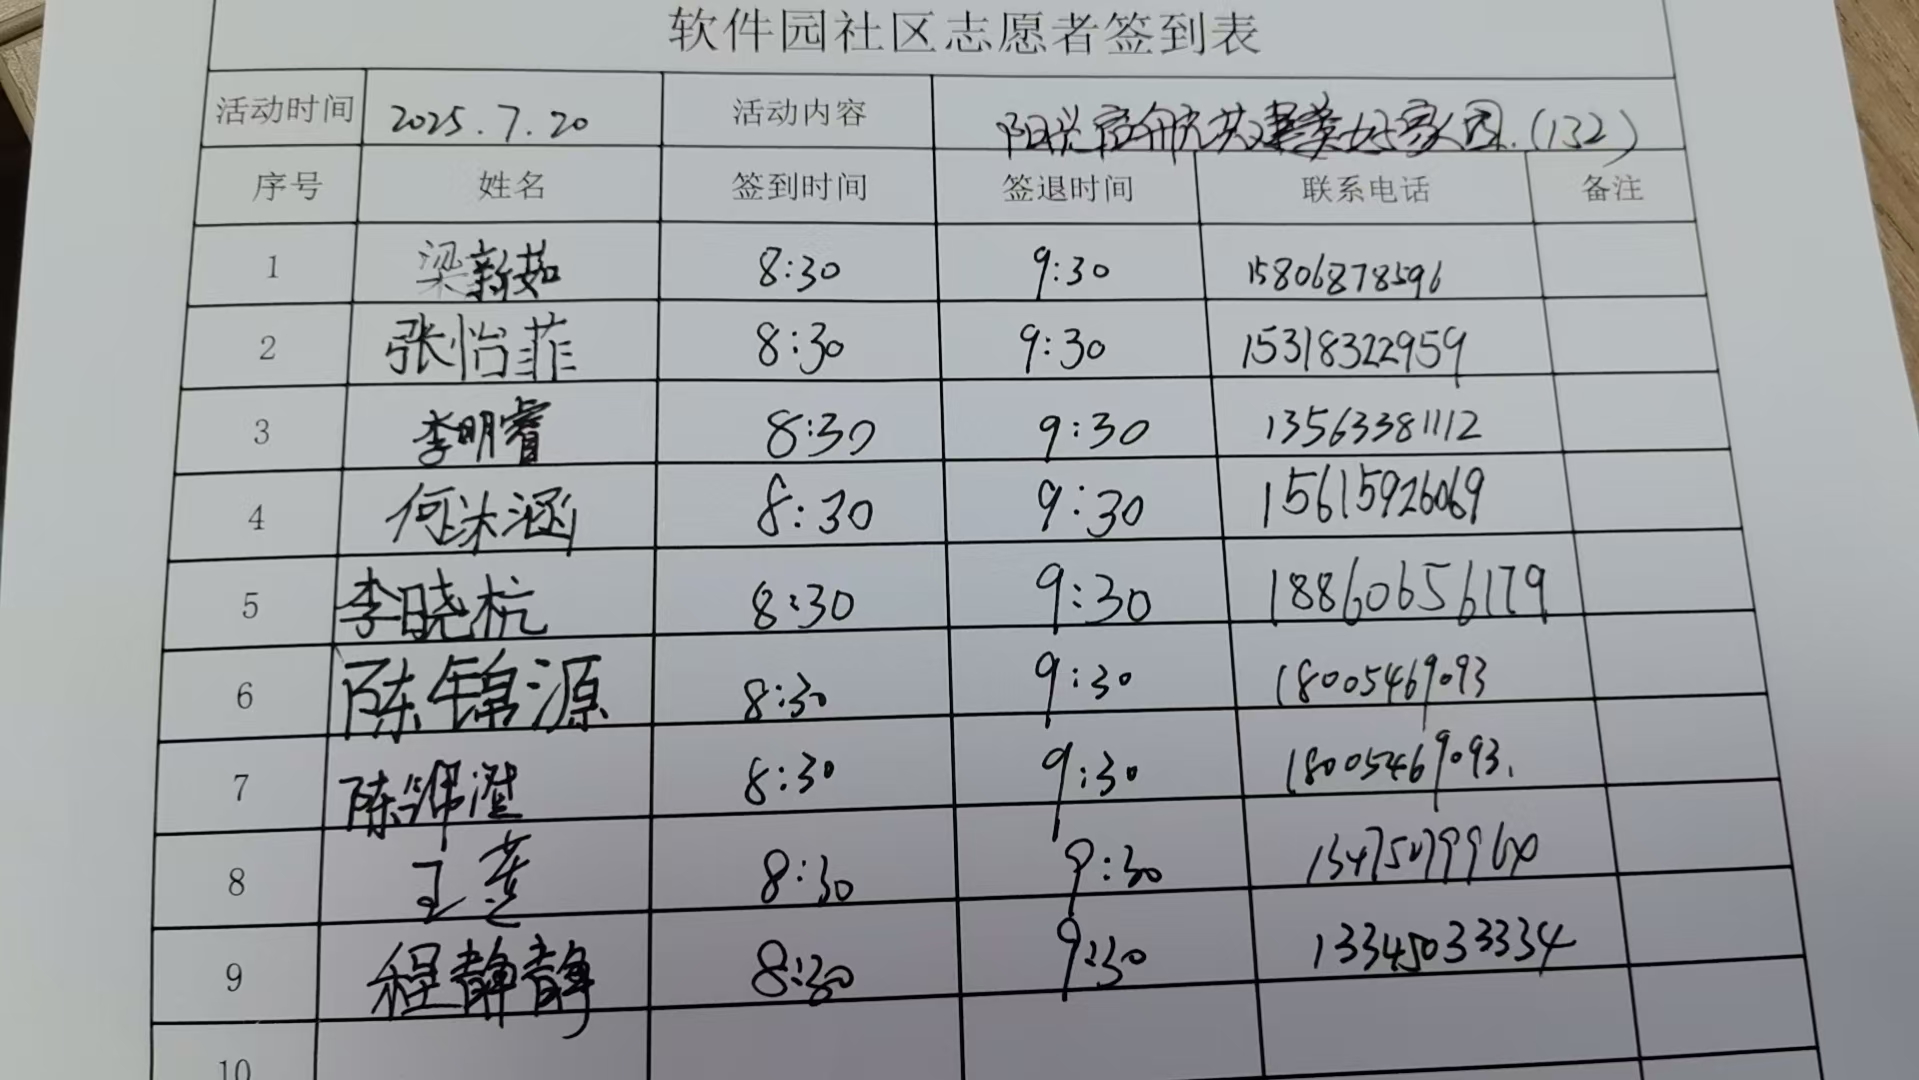 软件园社区志愿者签到表
活动时间 2025.7.20 活动内容 阳光启航共建美好家园.(132)
序号 姓名 签到时间 签退时间 联系电话 备注
1 梁新茹 8:30 9:30 15806878596
2 张怡菲 8:30 9:30 15318322959
3 李明睿 8:30 9:30 13563381112
4 何沐涵 8:30 9:30 15615926069
5 李晓杭 8:30 9:30 18860656179
6 陈锦源 8:30 9:30 18005469093
7 陈锦澄 8:30 9:30 18005469093.
8 王 8:30 9:30
9 程静静 8:30 9:30 13345033334
10